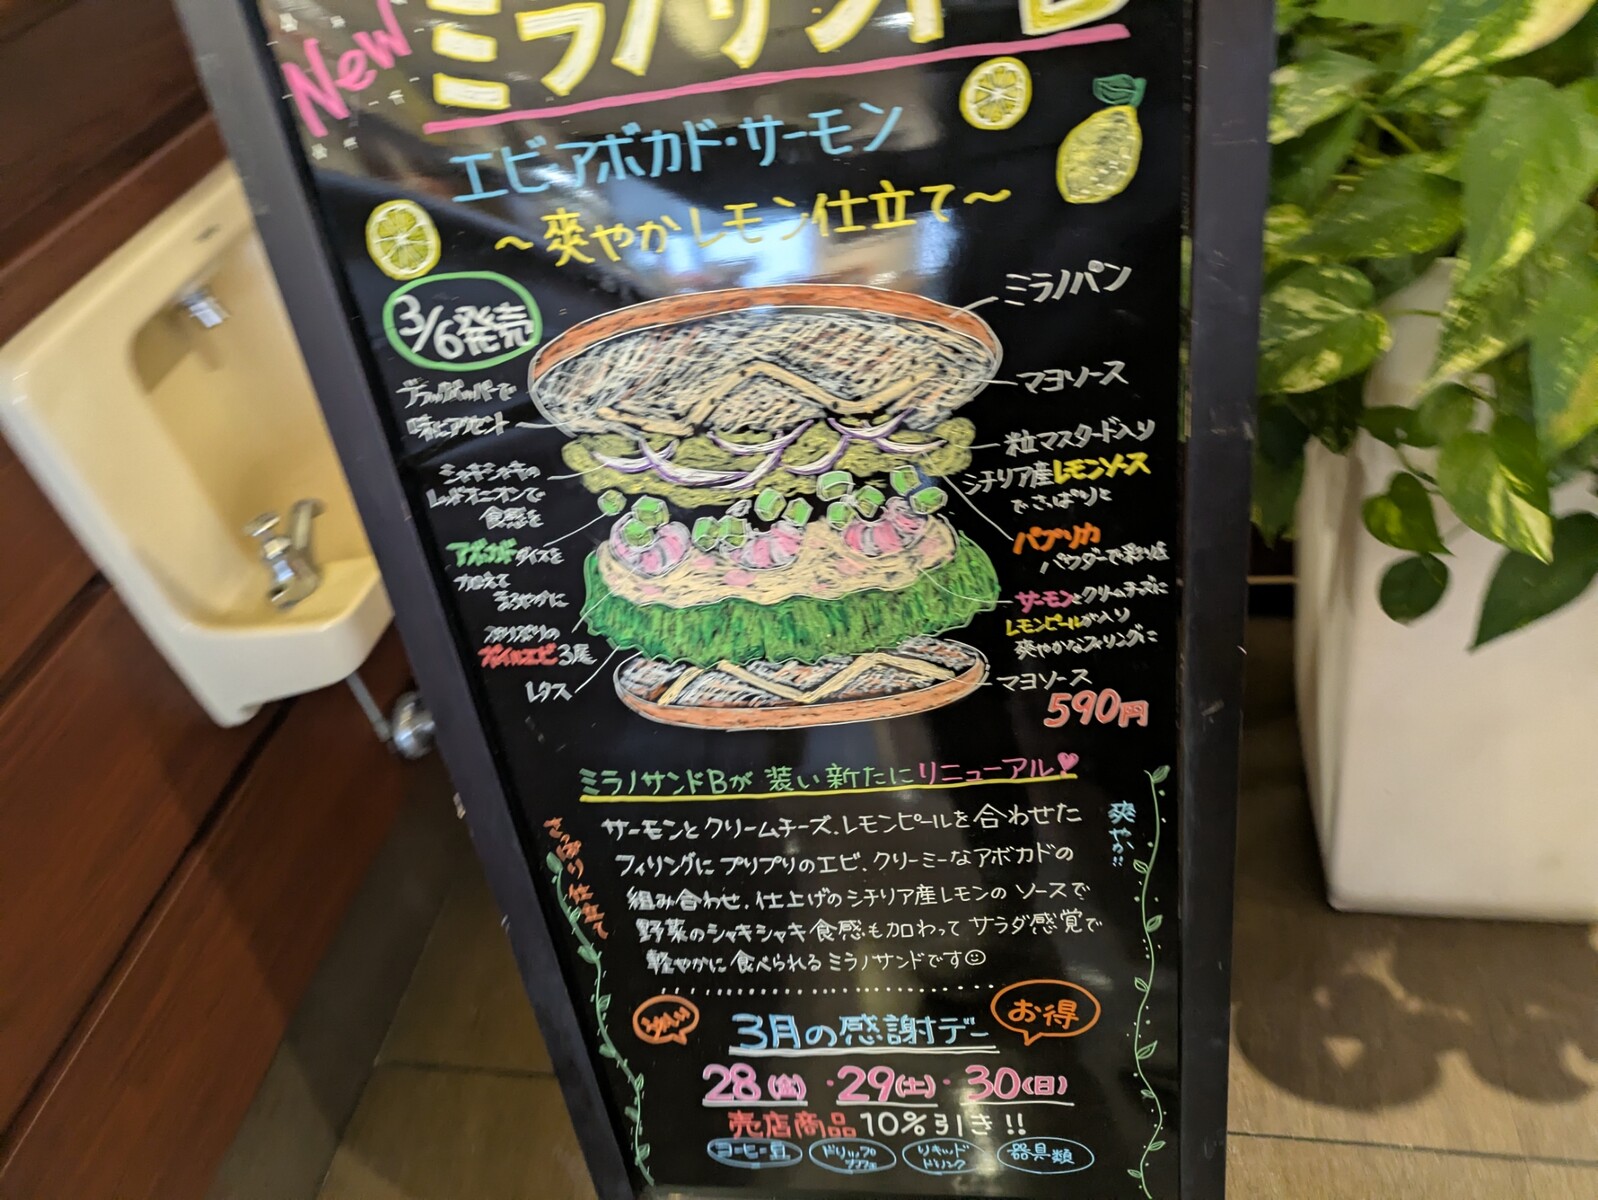 New
ミラノサンドB
エビ・アボカド・サーモン
～爽やかレモン仕立て～
3/6発売
ミラノパン
マヨソース
粒マスタード入り
シチリア産レモンソース
でさっぱりと
パプリカ
パウダーで彩りを
サーモンとクリームチーズに
レモンピールが入り
爽やかなフィリングに
マヨソース
590円
ブラックペッパーで
味にアクセント
シャキシャキの
レッドオニオンで
食感を
アボカドダイスを
加えて
まろやかに
プリプリの
ボイルエビ3尾
レタス
ミラノサンドBが装い新たにリニューアル♡
さっぱり仕立て
爽やか!!
サーモンとクリームチーズ、レモンピールを合わせた
フィリングにプリプリのエビ、クリーミーなアボカドの
組み合わせ、仕上げのシチリア産レモンのソースで
野菜のシャキシャキ食感も加わってサラダ感覚で
軽やかに食べられるミラノサンドです☺
3月の感謝デー
お得
28(金)・29(土)・30(日)
売店商品10%引き!!
コーヒー豆
ドリップ
カフェ
リキッド
ドリンク
器具類